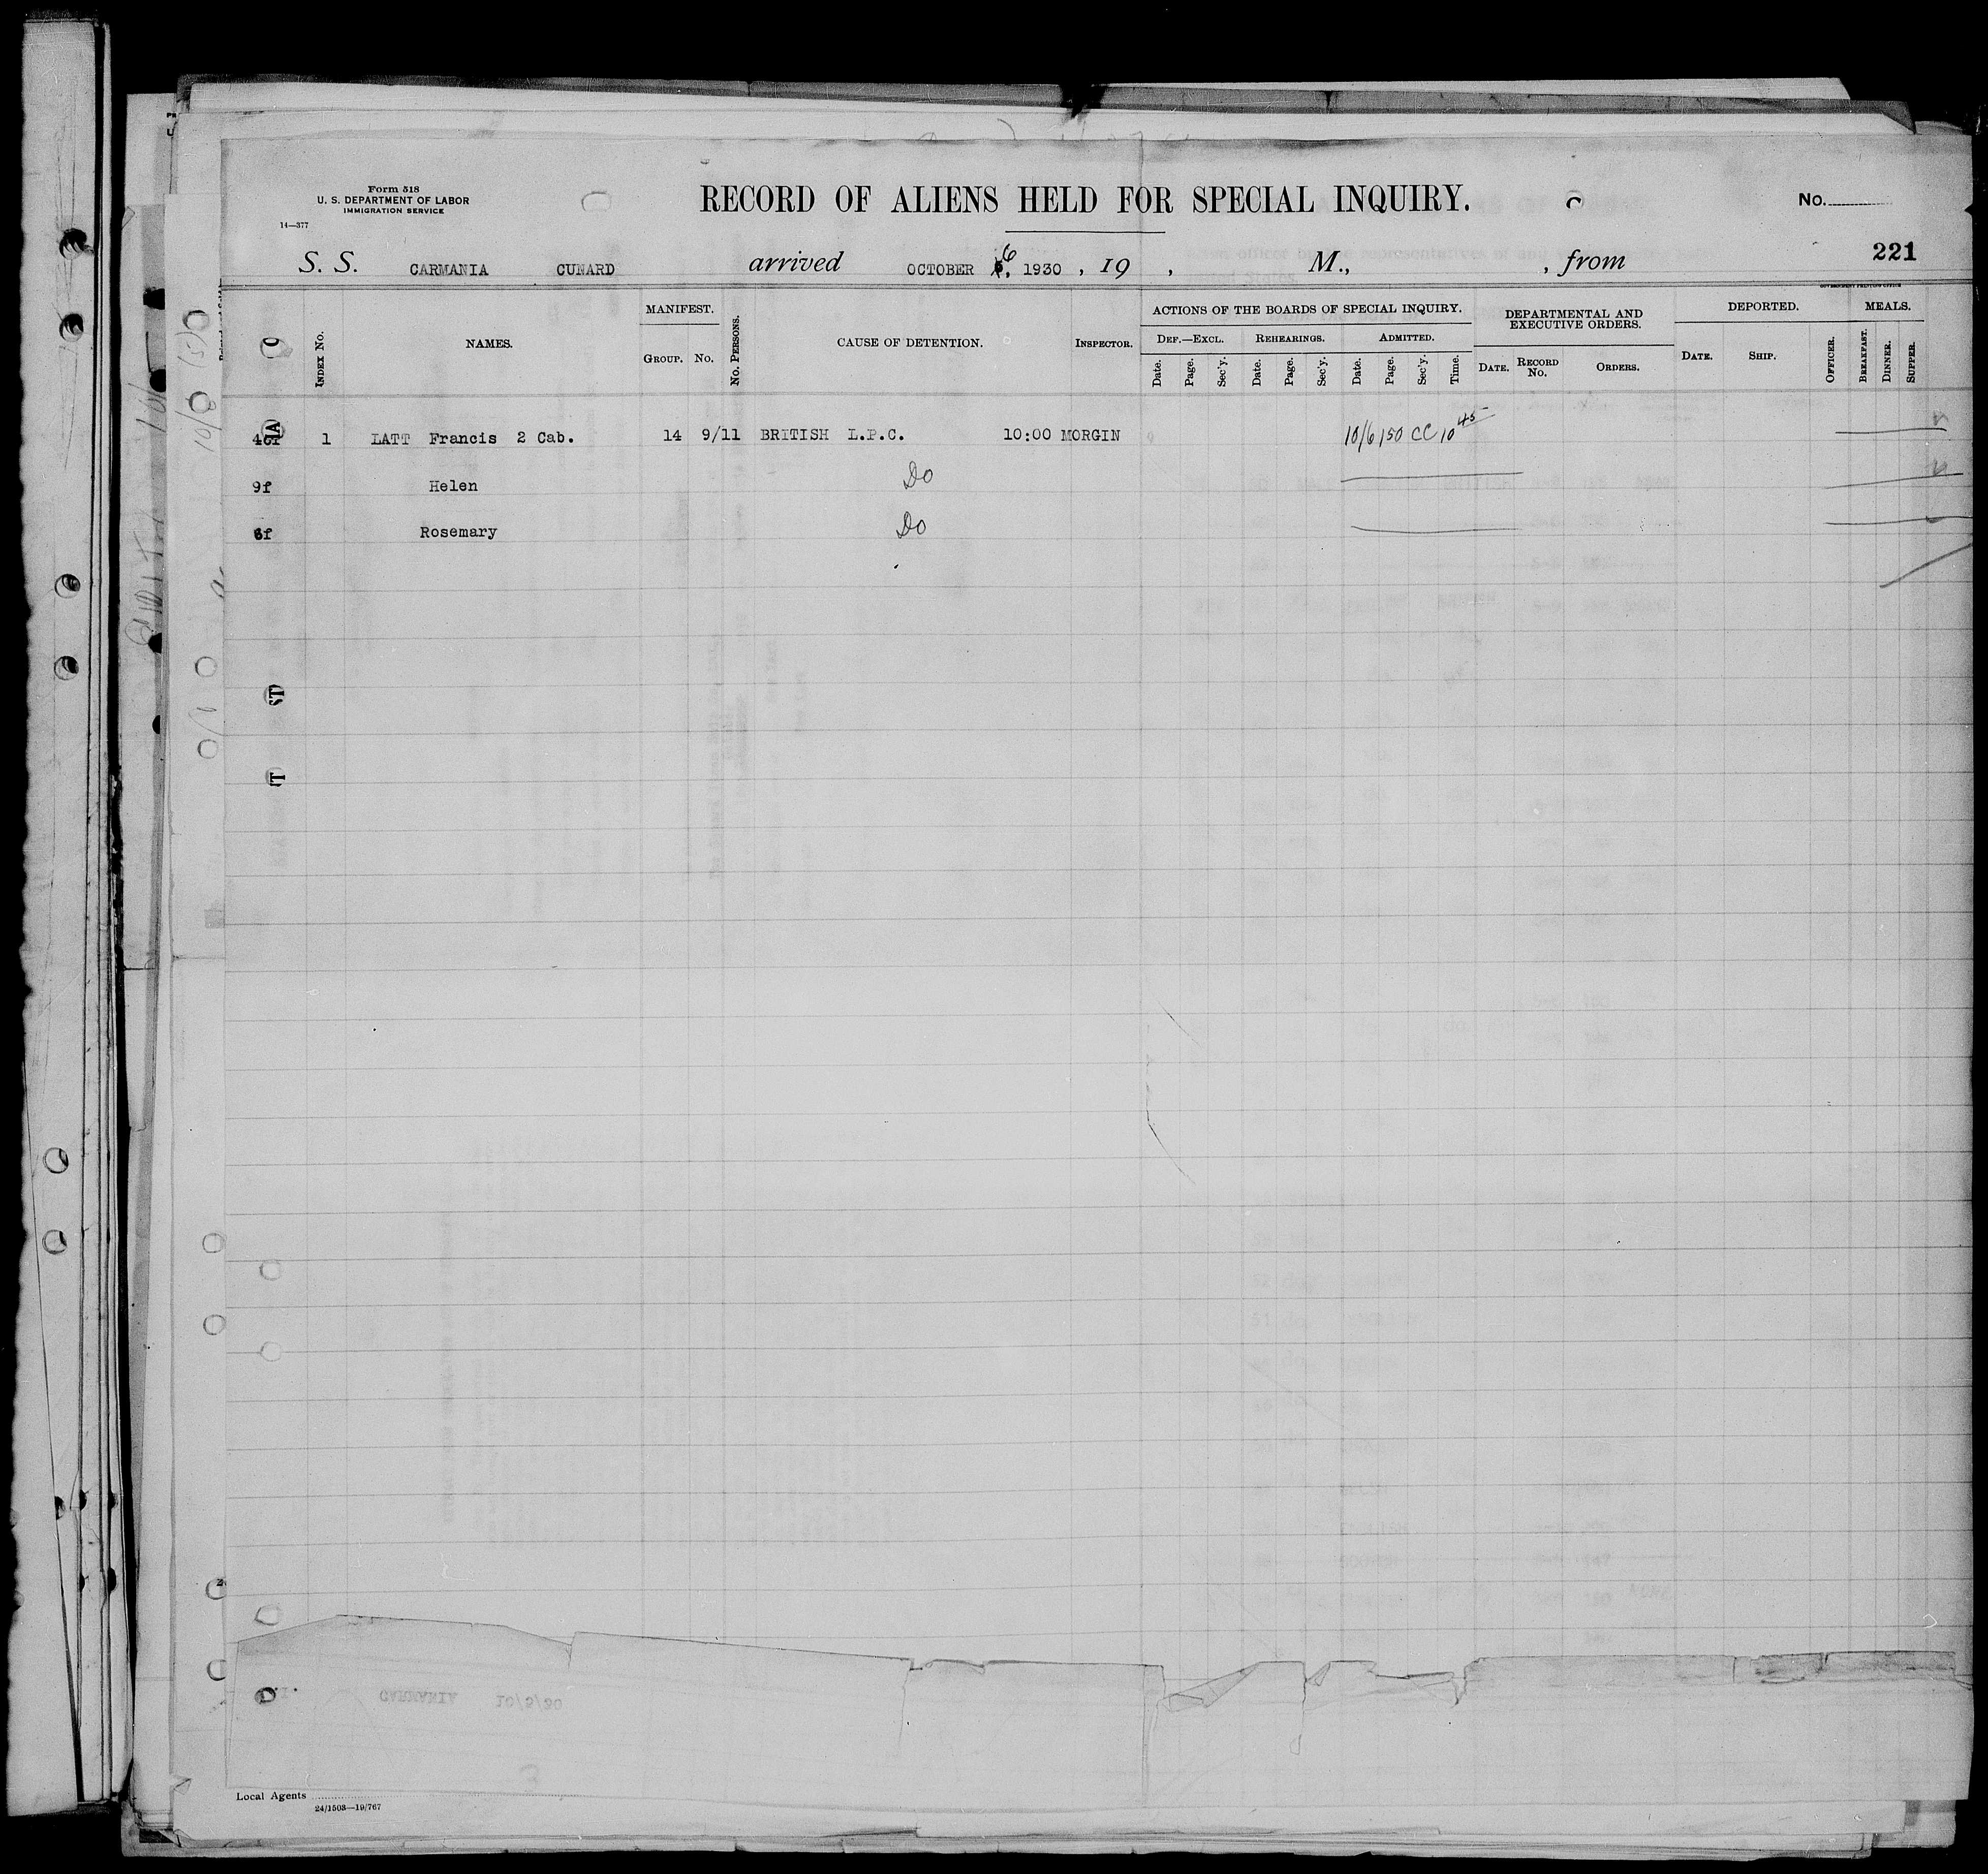 Form 518
U. S. DEPARTMENT OF LABOR
IMMIGRATION SERVICE
14—377
RECORD OF ALIENS HELD FOR SPECIAL INQUIRY.
No.
221
S. S. CARMANIA CUNARD arrived OCTOBER 6, 1930 , 19 , M., , from
INDEX No.
NAMES.
MANIFEST.
GROUP. No.
No. PERSONS.
CAUSE OF DETENTION.
INSPECTOR.
ACTIONS OF THE BOARDS OF SPECIAL INQUIRY.
DEF.—EXCL. REHEARINGS. ADMITTED.
Date. Page. Sec'y. Date. Page. Sec'y. Date. Page. Sec'y. Time.
DEPARTMENTAL AND EXECUTIVE ORDERS.
DATE. RECORD No. ORDERS.
DEPORTED.
DATE. SHIP.
OFFICER.
MEALS.
BREAKFAST. DINNER. SUPPER.
1 LATT Francis 2 Cab. 14 9/11 BRITISH L.P.C. 10:00 MORGIN 10/6 150 CC 10 45
9f Helen Do
6f Rosemary Do
CARMANIA 10/5/30
Local Agents
24/1503—19/767